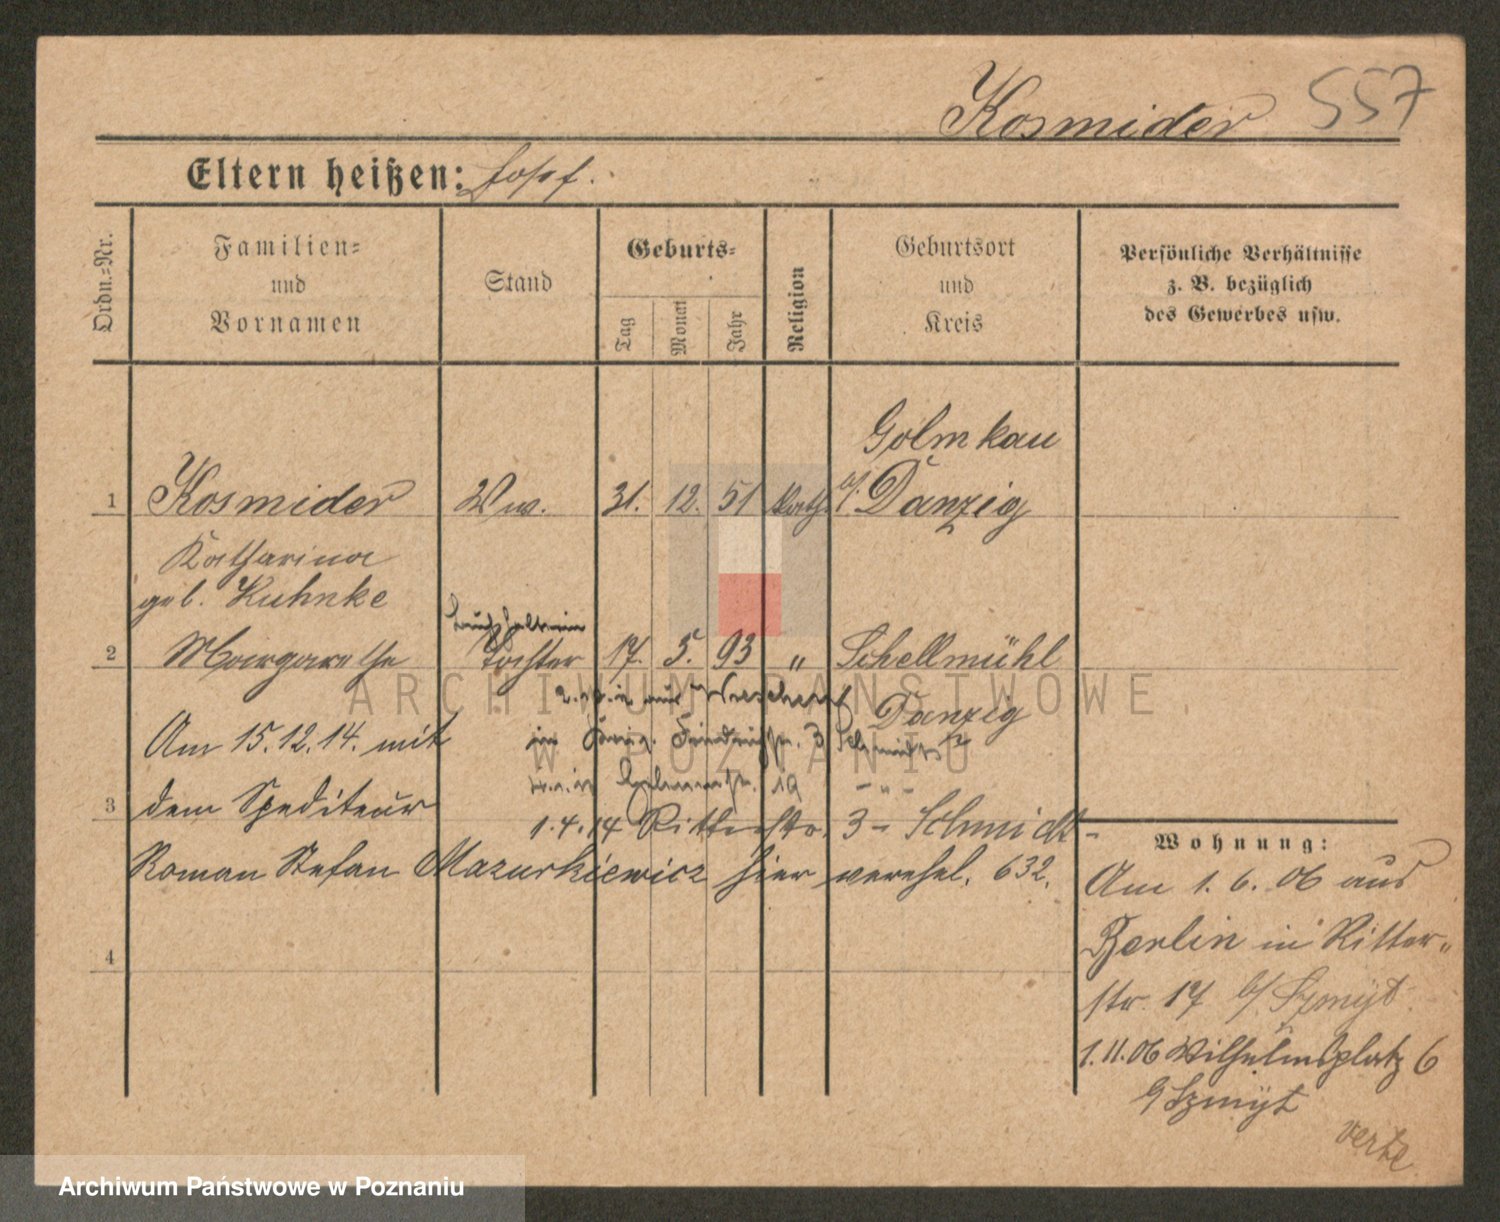 Kosmider 557
Eltern heißen: Josef.
Ordn.=Nr.
Familien=
und
Vornamen
Stand
Geburts=
Tag
Monat
Jahr
Religion
Geburtsort
und
Kreis
Persönliche Verhältnisse
z. B. bezüglich
des Gewerbes usw.
Golmkau
1 Kosmider Ww. 31. 12. 51 kath. b/ Danzig
Katharina
geb. Kuhnke
Buchhalterin
2 Margarethe Tochter 17. 5. 93 " Schellmühl
Danzig
ARCHIWUM PAŃSTWOWE
W POZNANIU
Am 15.12.14. mit
3 dem Spediteur
1.4.14 Ritterstr. 3 - Schmidt -
Roman Stefan Mazurkiewicz hier verehel. 632.
4
Wohnung:
Am 1. 6. 06 aus
Berlin in Ritter-
str. 17 b/ Szmyt.
1.11.06 Wilhelmsplatz 6
b/ Szmyt
verte
Archiwum Państwowe w Poznaniu